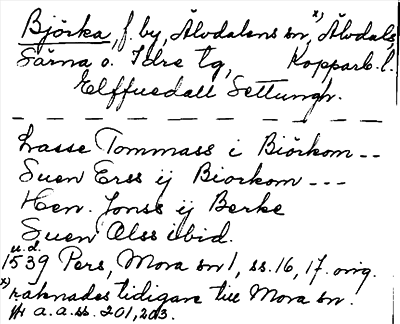 Björka, f. by, Älvdalens sn, x) Älvdals,
Särna o. Idre tg, Kopparb. l.
Elffuedall Settungh.
Lasse Tommass i Biörkom --
Suen Erss ij Biorkom ---
Hen. Jonss ij Berke
Suen Olss ibid.
u.d.
1539 Pers, Mora sn 1, ss. 16, 17. orig.
x) räknades tidigare till Mora sn.
a.a. ss. 201, 203.